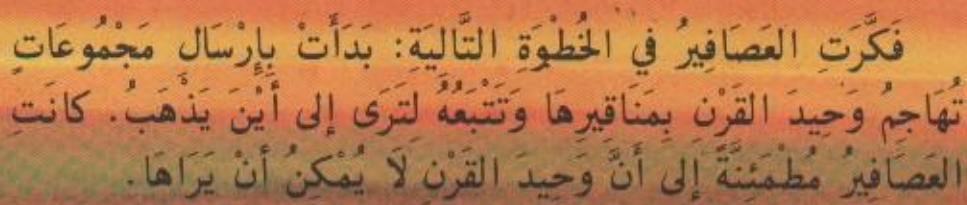 فَكَّرَتِ العَصَافِيرُ في الخُطْوَةِ التَّالِيَةِ: بَدَأَتْ بِإِرْسَالِ مَجْمُوعَاتٍ
تُهَاجِمُ وَحِيدَ القَرْنِ بِمَنَاقِيرِهَا وَتَتْبَعُهُ لِتَرَى إلى أَيْنَ يَذْهَبُ. كانَتِ
العَصَافِيرُ مُطْمَئِنَّةً إلى أَنَّ وَحِيدَ القَرْنِ لَا يُمْكِنُ أَنْ يَرَاهَا.